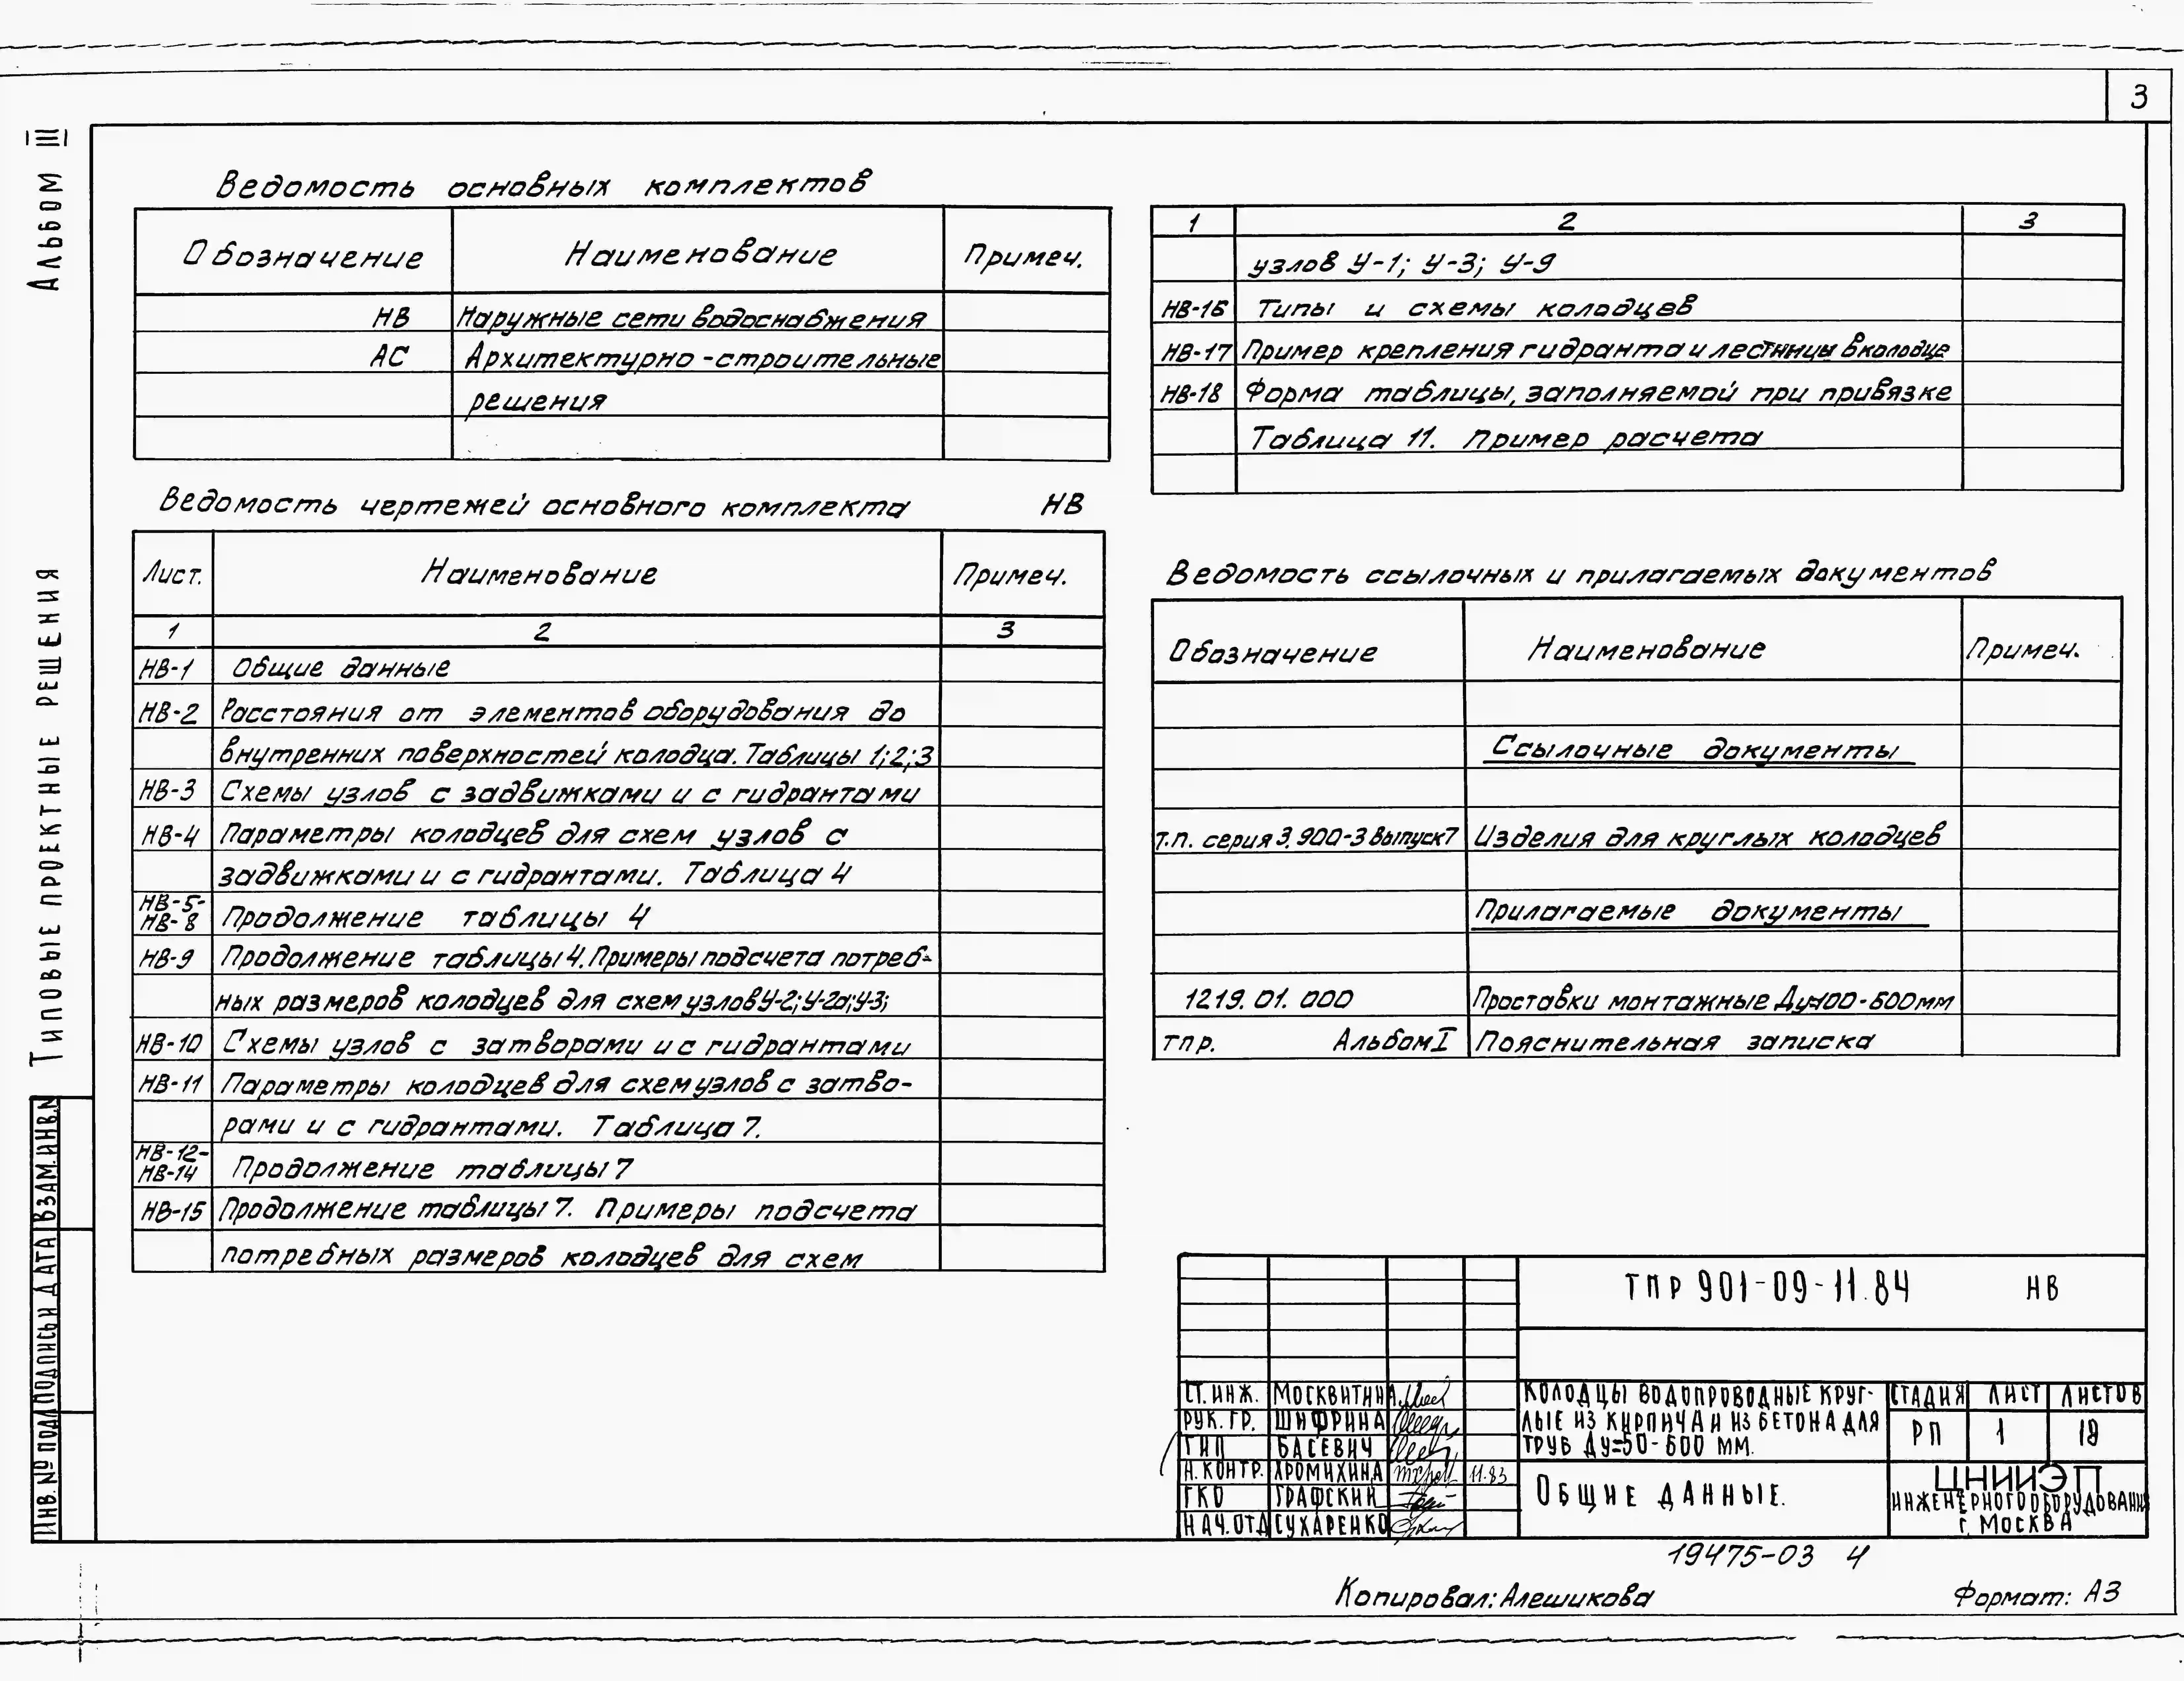 3
Альбом III
Типовые проектные решения
Ведомость основных комплектов
Обозначение Наименование Примеч.
НВ Наружные сети водоснабжения
АС Архитектурно-строительные
решения
Ведомость чертежей основного комплекта НВ
Лист. Наименование Примеч.
1 2 3
НВ-1 Общие данные
НВ-2 Расстояния от элементов оборудования до
внутренних поверхностей колодца. Таблицы 1;2;3
НВ-3 Схемы узлов с задвижками и с гидрантами
НВ-4 Параметры колодцев для схем узлов с
задвижками и с гидрантами. Таблица 4
НВ-5-
НВ-8 Продолжение таблицы 4
НВ-9 Продолжение таблицы 4. Примеры подсчета потреб-
ных размеров колодцев для схем узлов У-2; У-2а; У-3;
НВ-10 Схемы узлов с затворами и с гидрантами
НВ-11 Параметры колодцев для схем узлов с затво-
рами и с гидрантами. Таблица 7.
НВ-12-
НВ-14 Продолжение таблицы 7
НВ-15 Продолжение таблицы 7. Примеры подсчета
потребных размеров колодцев для схем
1 2 3
узлов У-1; У-3; У-9
НВ-16 Типы и схемы колодцев
НВ-17 Пример крепления гидранта и лестницы в колодце
НВ-18 Форма таблицы, заполняемой при привязке
Таблица 11. Пример расчета
Ведомость ссылочных и прилагаемых документов
Обозначение Наименование Примеч.
Ссылочные документы
Т.п. серия 3.900-3 выпуск 7 Изделия для круглых колодцев
Прилагаемые документы
1219.01.000 Проставки монтажные Ду=100-600мм
тпр. Альбом I Пояснительная записка
ТПР 901-09-11.84 НВ
Ст. инж. Москвитин
Рук. гр. Шифрина
ГИП Басевич
Н. контр. Хромихина 11.83
ГКО Графский
Нач. отд Сухаренко
Колодцы водопроводные круг-
лые из кирпича и из бетона для
труб Ду=50-600 мм.
Общие данные.
Стадия Лист Листов
РП 1
ЦНИИЭП
инженерного оборудования
г. Москва
Инв. № подл Подпись и дата Взам. инв. №
19475-03 4
Копировал: Алешикова Формат: А3